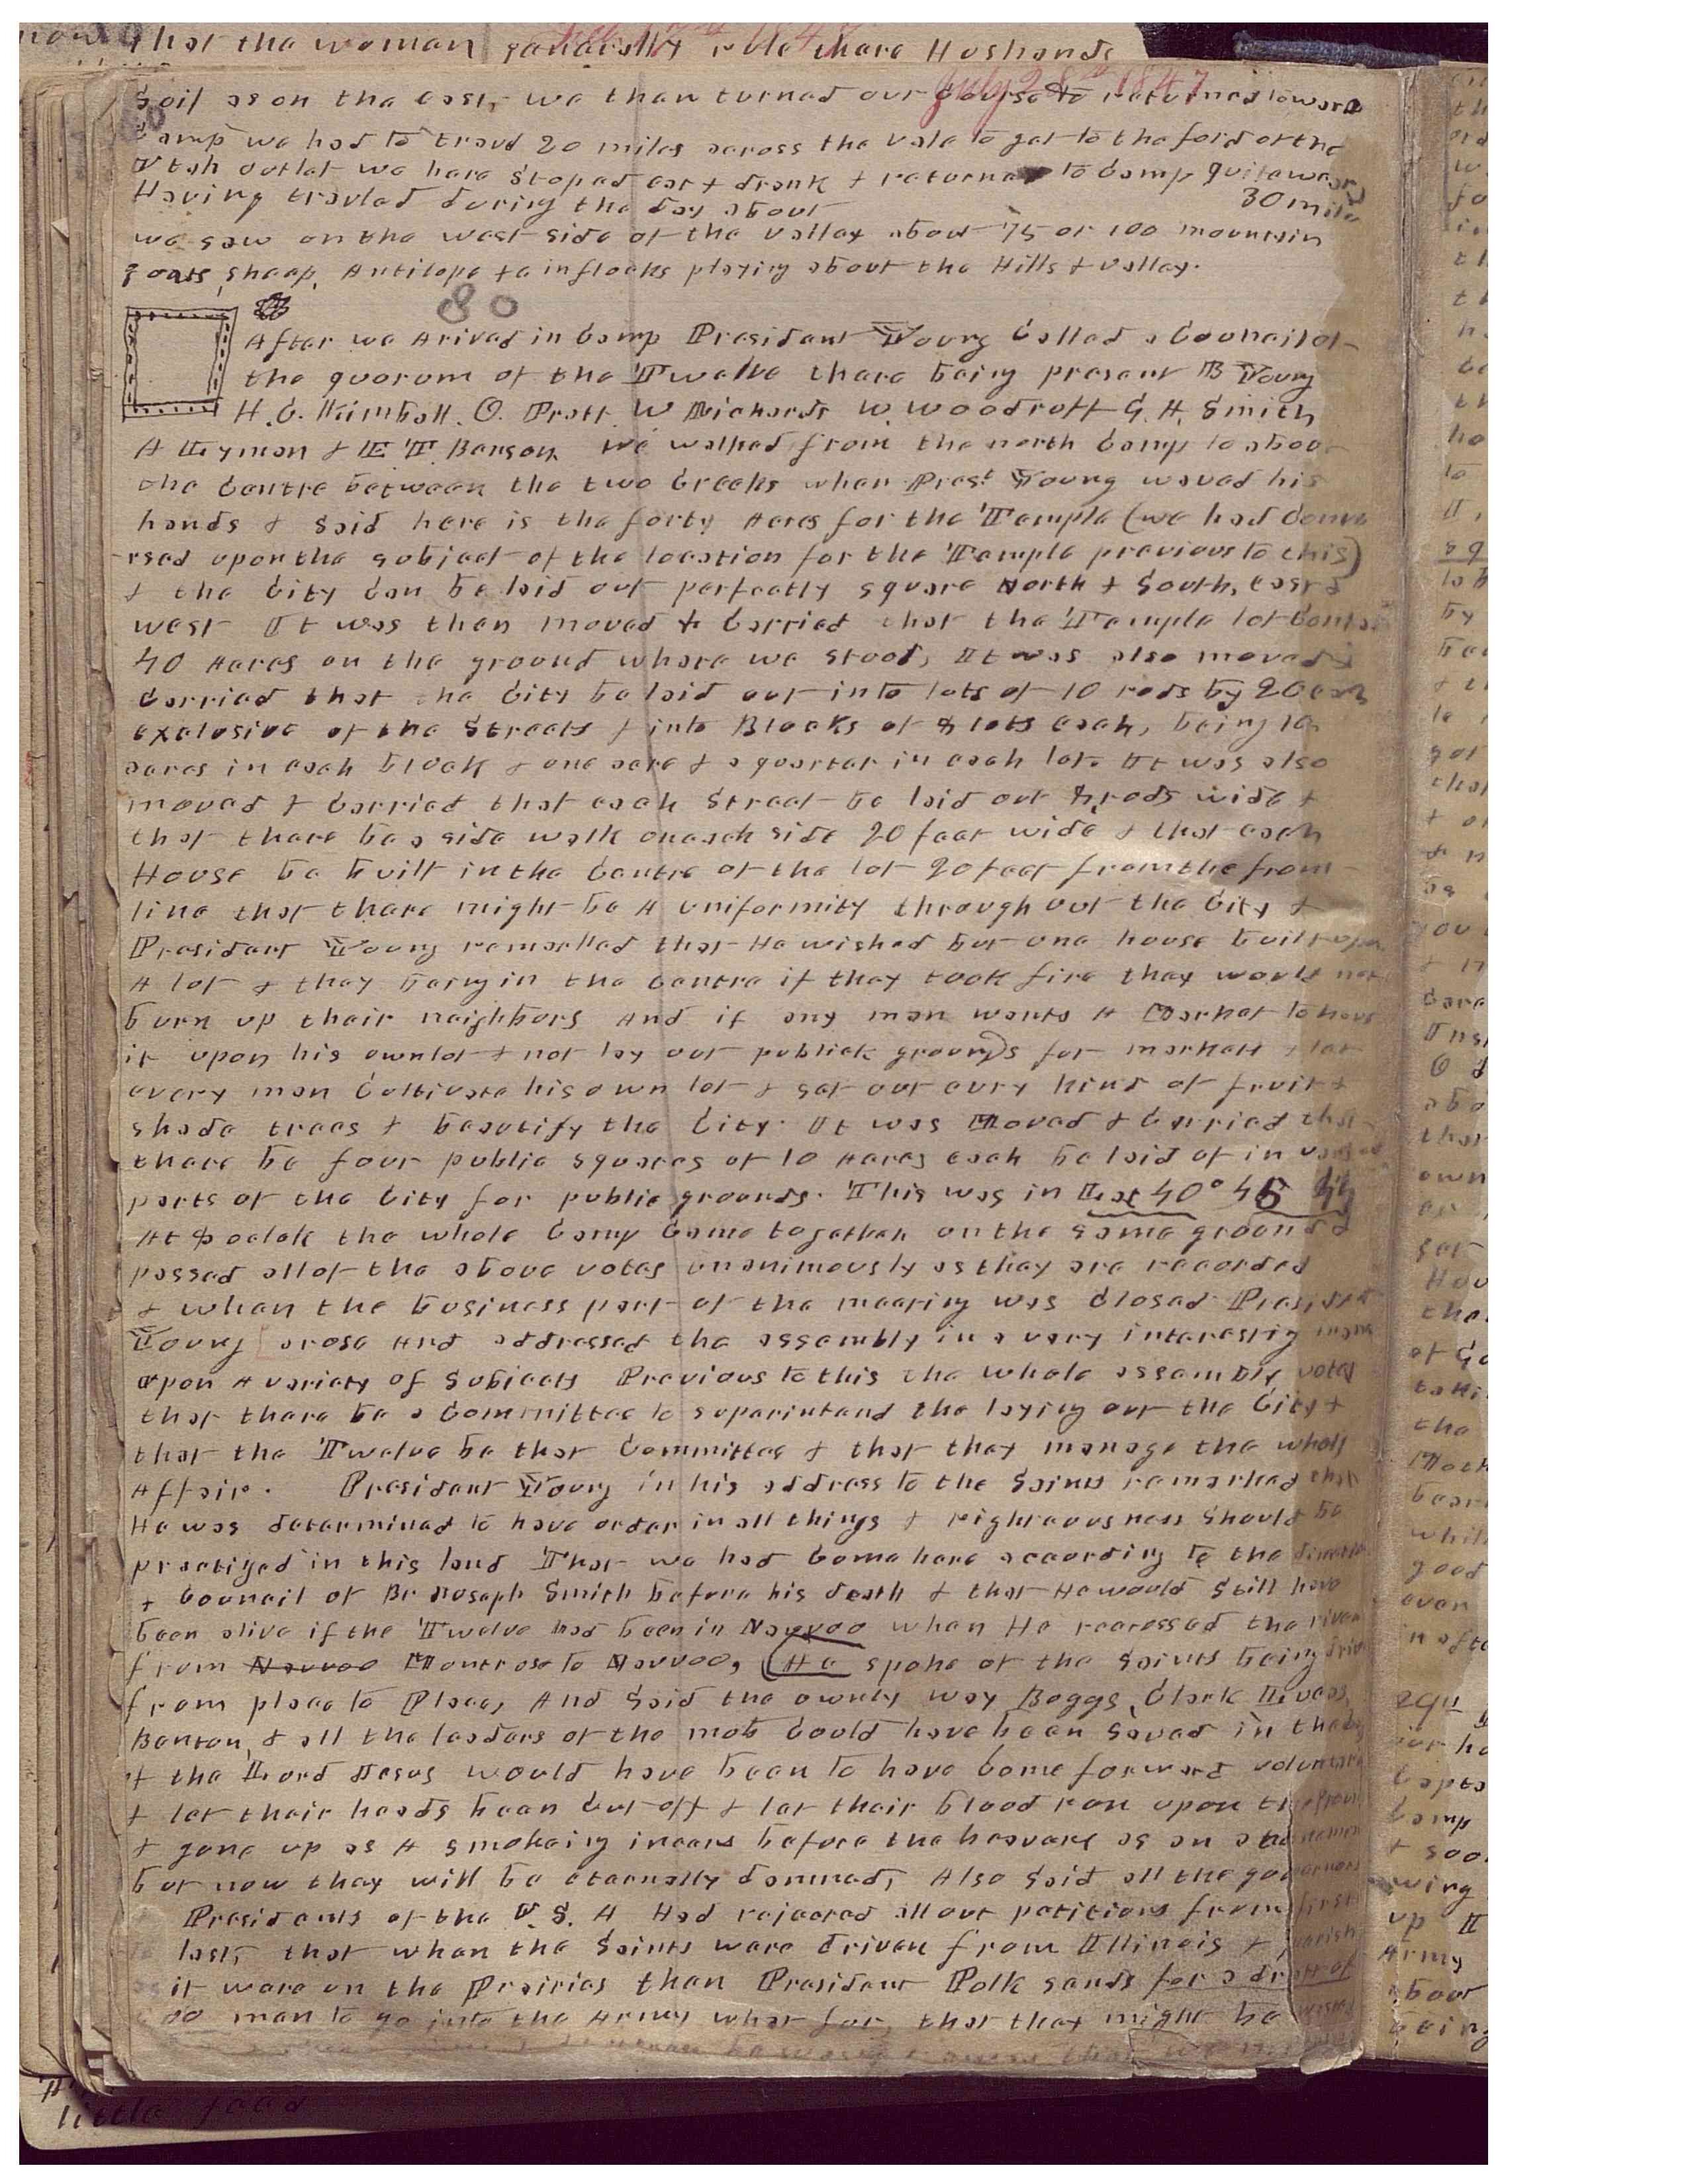 that the woman generally rule there Husbands
July 28th 1847
soil as on the east, we then turned our course & returned toward
camp we had to travel 20 miles across the vale to get to the ford of the
Utah outlet we here stoped eat & drank & returned to Camp quite weary
Having travled during the day about 30 mile
we saw on the west side of the valley about 75 or 100 mountain
goats, sheep, Antilope &c in flocks playing about the Hills & valley.
80
After we Arived in Camp President Young Called a Council of
the quorum of the Twelve there being present B Young
H. C. Kimball. O. Pratt W Richards W. Woodruff G. A. Smith
A Lyman & E T Benson We walked from the north Camp to about
the Centre between the two Creeks when Prest Young waved his
hands & said here is the forty Acres for the Temple (we had conve
rsed upon the subject of the location for the Temple previous to this)
& the City can be laid out perfectly square North & South, east &
west It was then moved & Carried that the Temple lot Contain
40 Acres on the ground where we stood, It was also moved &
Carried that the City be laid out into lots of 10 rods by 20 each
exclusive of the Streets & into Blocks of 8 lots each, being 10
acres in each block & one acre & a quarter in each lot. It was also
moved & Carried that each Street be laid out 8 rods wide &
that there be a side walk on each side 20 feet wide & that each
House be built in the Centre of the lot 20 feet from the front
line that there might be A uniformity through out the City &
President Young remarked that He wished but one house built upon
A lot & they being in the Centre if they took fire they would not
burn up their neighbors And if any man wants A Market to have
it upon his own lot & not lay out publick grounds for markett & let
every man Cultivate his own lot & set out evry kind of fruit &
shade trees & beautify the City. It was Moved & Carried that
there be four public squares of 10 Acres each be laid of in various
parts of the City for public grounds. This was in Lat 40° 45
At 8 oclok the whole Camp Came together on the same ground &
passed all of the above votes unanimously as they are recorded
& when the business part of the meeting was Closed President
Young arose And addressed the assembly in a very interestig manner
upon A variety of Subjects Previous to this the whole assembly voted
that there be a Committee to superintend the laying out the City &
that the Twelve be that Committee & that they manage the whole
Affair. President Young in his address to the Saints remarked that
He was determined to have order in all things & righteousness Should be
practized in this land That we had Come here according to the direction
& Council of Br Joseph Smith before his death & that He would Still have
been alive if the Twelve had been in Nauvoo when He recrossed the river
from Nauvoo Montrose to Nauvoo, He spoke of the Saints being driven
from place to Place, And Said the ownly way Boggs, Clark Lucas,
Benton, & all the leaders of the mob Could have been Saved in the day
of the Lord Jesus would have been to have Come forward voluntarily
& let their heads been Cut off & let their blood run upon the ground
& gone up as A smokeing incens before the heavens as an atonement
but now they will be eternally damned, Also Said all the governors
Presidents of the U. S. A Had rejected all our petitions from first
last, that when the Saints were driven from Illinois & perish
it were on the Prairies then President Polk sends for a draft of
00 men to go into the Army what for, that they might be wasted
little food